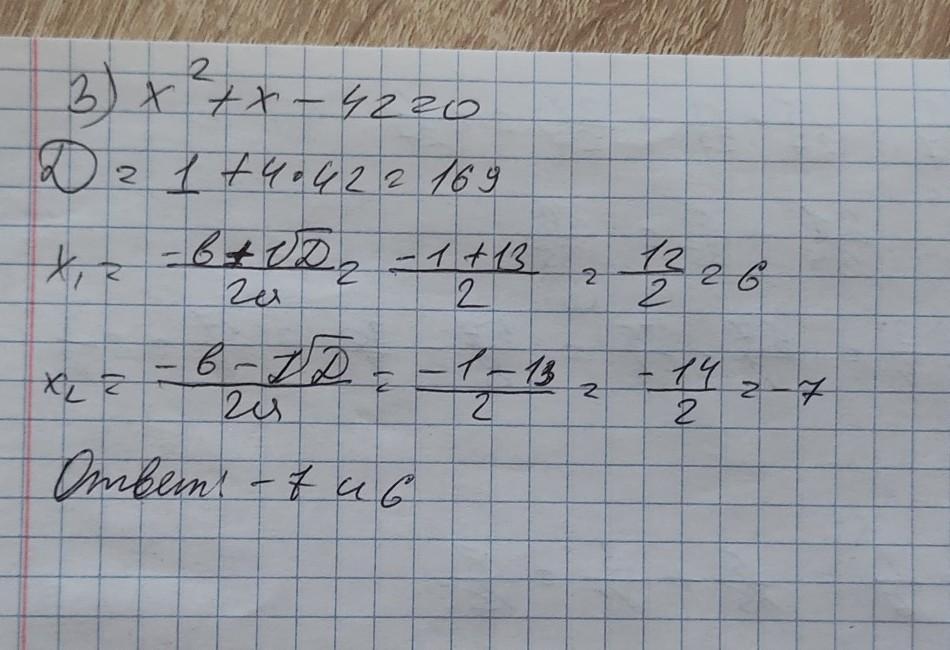 3) x² + x - 42 = 0
D = 1 + 4 · 42 = 169
x₁ = (-b + √D)/2a = (-1 + 13)/2 = 12/2 = 6
x₂ = (-b - √D)/2a = (-1 - 13)/2 = -14/2 = -7
Ответ: -7 и 6